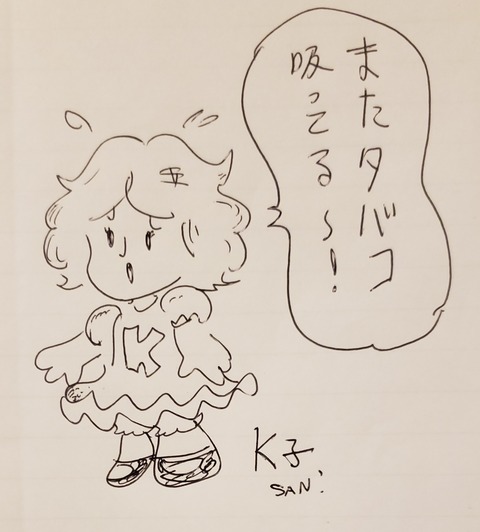 またタバコ
吸ってる～!
K
K子
SAN!